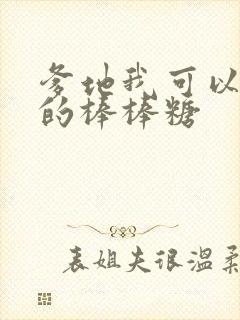 爹地我可以
的棒棒糖
表姐夫很温柔